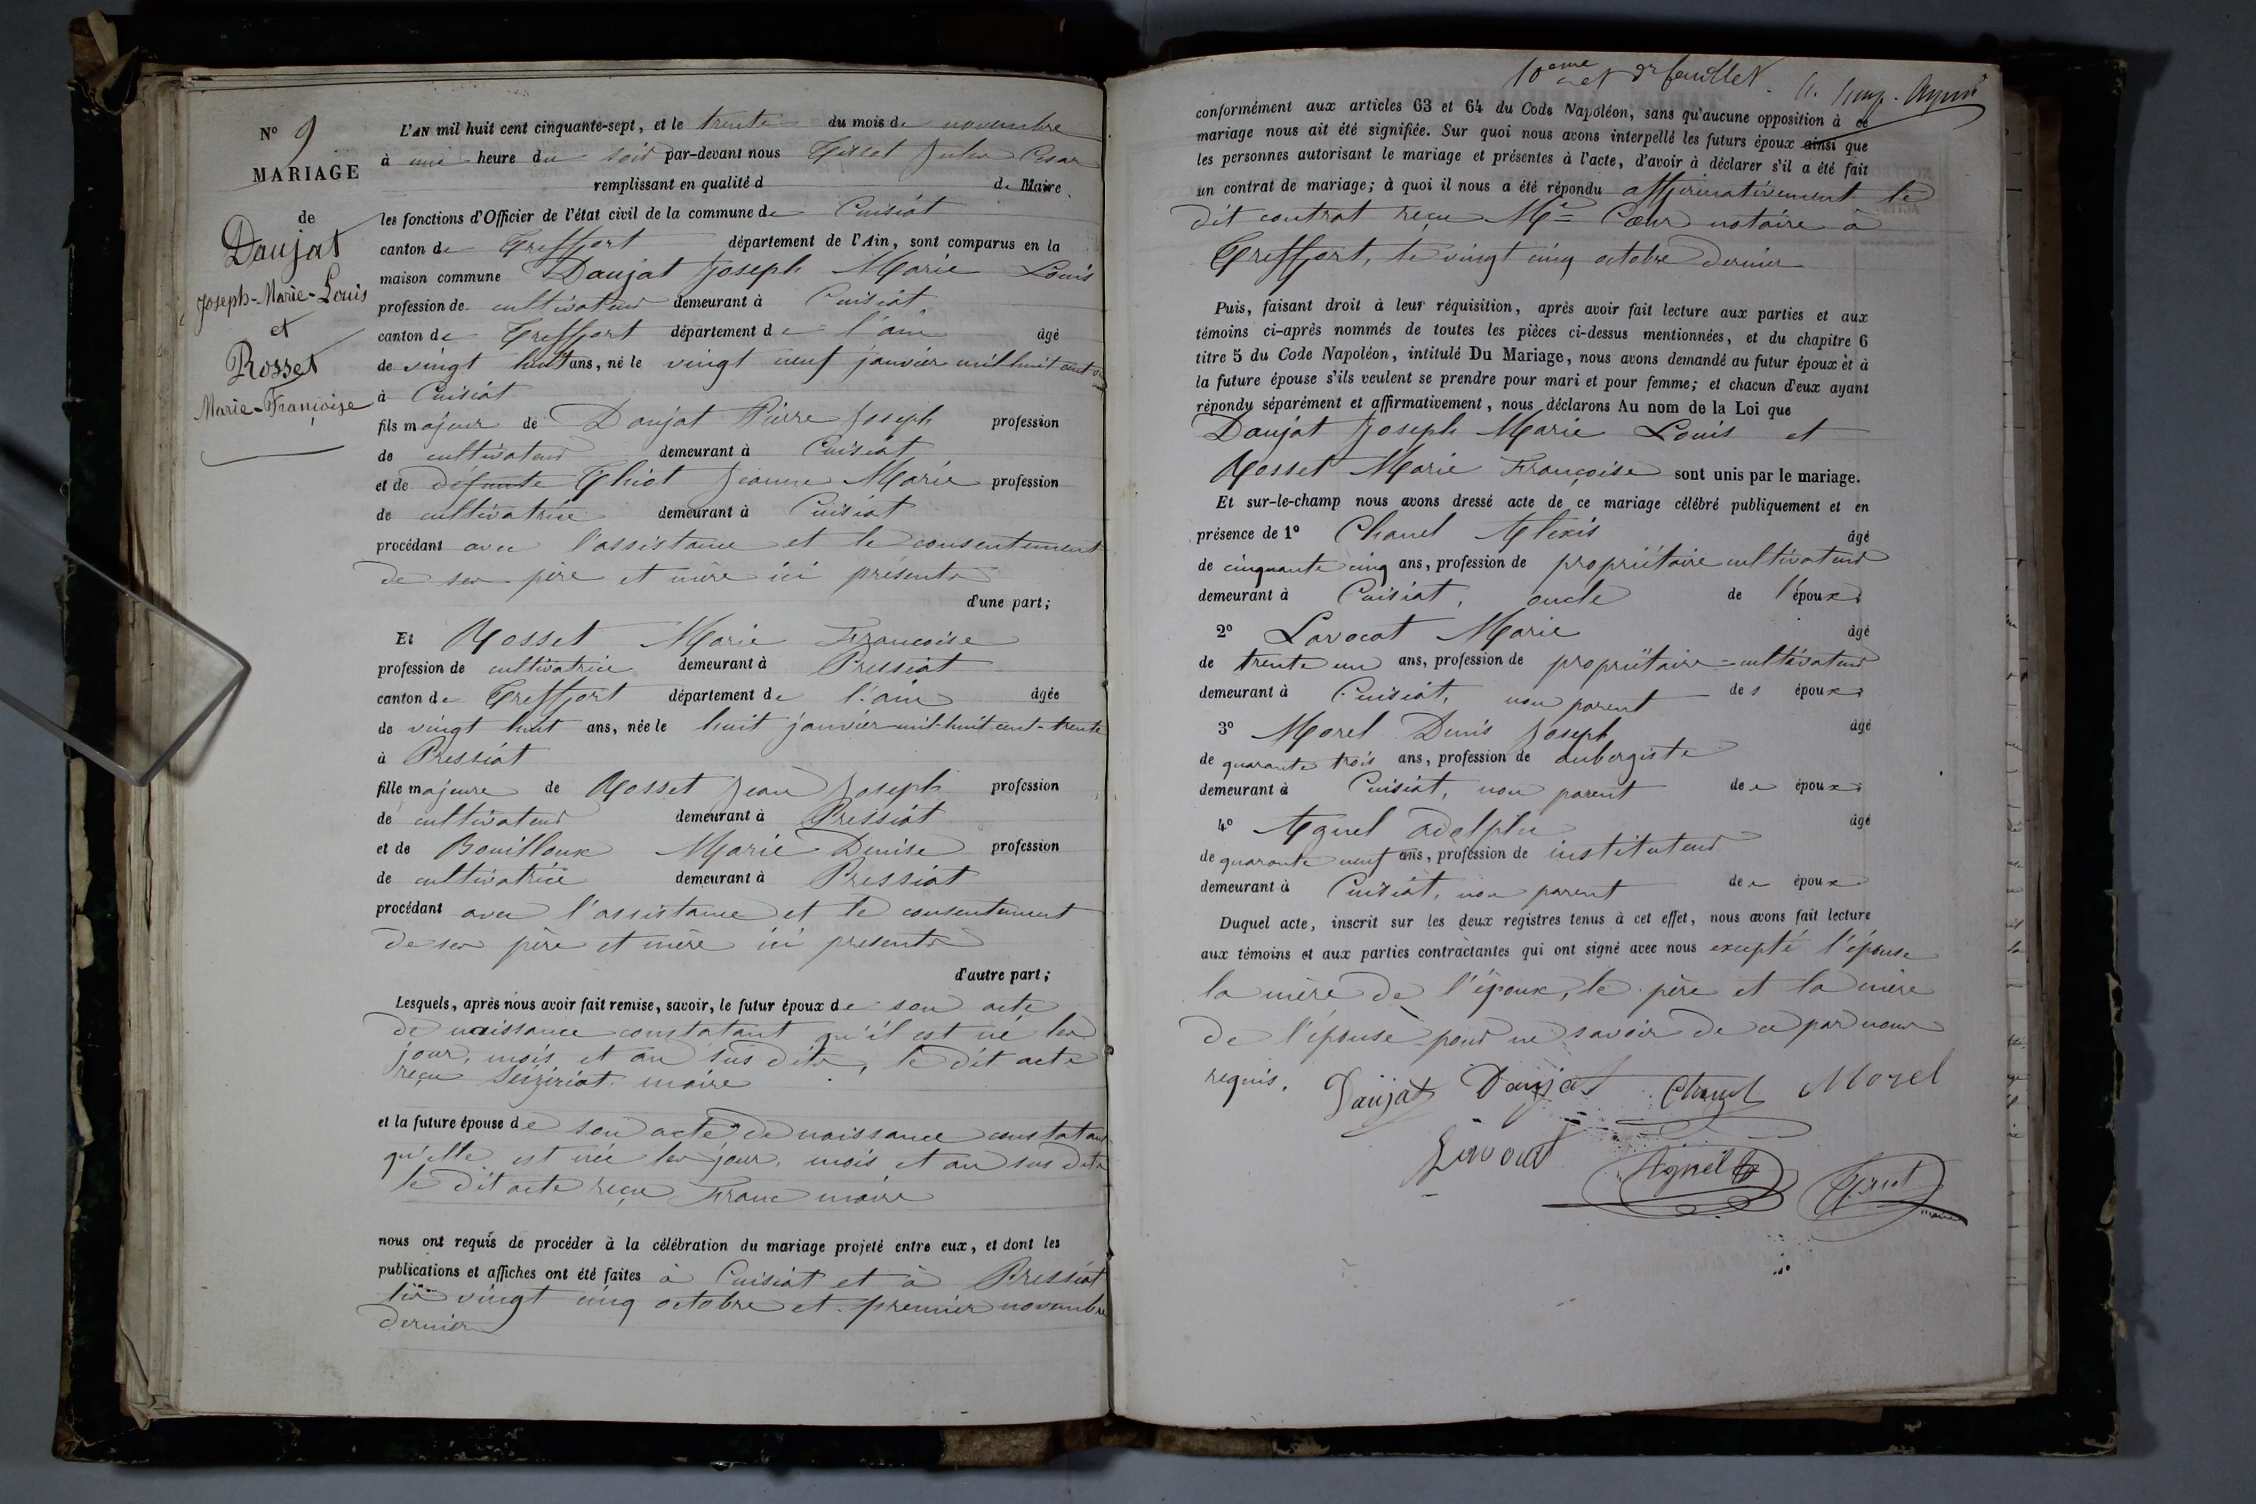 N° 9
MARIAGE
de
Daujat
Joseph-Marie-Louis
et
Rosset
Marie-Françoise
L'AN mil huit cent cinquante-sept, et le trente du mois de novembre
à une heure du soir par-devant nous Jules Cesar
remplissant en qualité d de Maire
les fonctions d'Officier de l'état civil de la commune de Cuisiat
canton de Treffort département de l'Ain, sont comparus en la
maison commune Daujat Joseph Marie Louis
profession de cultivateur demeurant à Cuisiat
canton de Treffort département de l'ain âgé
de vingt huit ans, né le vingt neuf janvier mil huit cent
à Cuisiat
fils majeur de Daujat Pierre Joseph profession
de cultivateur demeurant à Cuisiat
et de défunte Thiot Jeanne Marie profession
de cultivatrice demeurant à Cuisiat
procédant avec l'assistance et le consentement
de ses père et mère ici présents
d'une part;
Et Rosset Marie Francoise
profession de cultivatrice demeurant à Pressiat
canton de Treffort département de l'ain âgée
de vingt huit ans, née le huit janvier mil-huit-cent-trente
à Pressiat
fille majeure de Rosset Jean Joseph profession
de cultivateur demeurant à Pressiat
et de Bouilloux Marie Denise profession
de cultivatrice demeurant à Pressiat
procédant avec l'assistance et le consentement
de ses père et mère ici présents
d'autre part;
Lesquels, après nous avoir fait remise, savoir, le futur époux de son acte
de naissance constatant qu'il est né les
jour, mois et an sus dits, le dit acte
reçu maire
et la future épouse de son acte de naissance constatant
qu'elle est née les jour, mois et an sus dits
le dit acte reçu Franc maire
nous ont requis de procéder à la célébration du mariage projeté entre eux, et dont les
publications et affiches ont été faites à Cuisiat et à Pressiat
les vingt cinq octobre et premier novembre
dernier
10eme et dr feuillet.
conformément aux articles 63 et 64 du Code Napoléon, sans qu'aucune opposition à ce
mariage nous ait été signifiée. Sur quoi nous avons interpellé les futurs époux ainsi que
les personnes autorisant le mariage et présentes à l'acte, d'avoir à déclarer s'il a été fait
un contrat de mariage; à quoi il nous a été répondu affirmativement le
dit contrat reçu Me Cœur notaire à
Treffort, le vingt cinq octobre dernier
Puis, faisant droit à leur réquisition, après avoir fait lecture aux parties et aux
témoins ci-après nommés de toutes les pièces ci-dessus mentionnées, et du chapitre 6
titre 5 du Code Napoléon, intitulé Du Mariage, nous avons demandé au futur époux et à
la future épouse s'ils veulent se prendre pour mari et pour femme; et chacun d'eux ayant
répondu séparément et affirmativement, nous déclarons Au nom de la Loi que
Daujat Joseph Marie Louis et
Rosset Marie Françoise sont unis par le mariage.
Et sur-le-champ nous avons dressé acte de ce mariage célébré publiquement et en
présence de 1° Chanel Alexis âgé
de cinquante cinq ans, profession de propriétaire cultivateur
demeurant à Cuisiat, oncle de l'époux
2° Lavocat Marie âgé
de trente un ans, profession de propriétaire-cultivateur
demeurant à Cuisiat, non parent des époux
3° Morel Denis Joseph âgé
de quarante trois ans, profession de aubergiste
demeurant à Cuisiat, non parent des époux
4° Agnel Adolphe âgé
de quarante neuf ans, profession de instituteur
demeurant à Cuisiat, non parent des époux
Duquel acte, inscrit sur les deux registres tenus à cet effet, nous avons fait lecture
aux témoins et aux parties contractantes qui ont signé avec nous excepté l'épouse
la mère de l'époux, le père et la mère
de l'épouse pour ne savoir de ce par nous
requis.
Daujat Daujat Chanel Morel
Lavocat
Agnel
maire